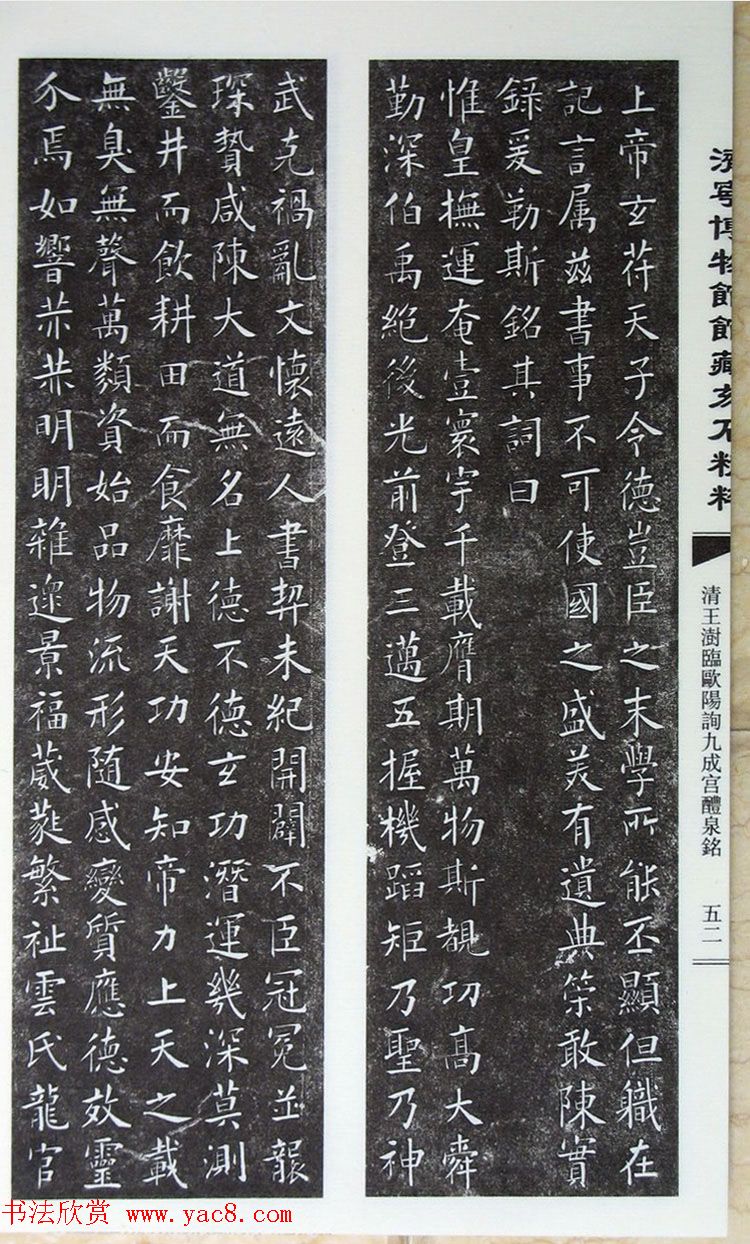 濟寧博物館館藏刻石
清王澍臨歐陽詢九成宮醴泉銘 五二
上帝玄苻天子令德豈臣之末學所能丕顯但職在
記言属兹書事不可使國之盛美有遺典筞敢陳實
録爰勒斯銘其詞曰
惟皇撫運奄壹寰宇千載膺期萬物斯覩功髙大舜
勤深伯禹絕後光前登三邁五握機蹈矩乃聖乃神
武克禍亂文懷遠人書契未紀開闢不臣冠冕並襲
琛贄咸陳大道無名上德不德玄功潛運幾深莫測
鑿井而飲耕田而食靡謝天功安知帝力上天之載
無臭無聲萬類資始品物流形随感變質應德效靈
介焉如響赫赫明明雜遝景福葳蕤繁祉雲氏龍官
书法欣赏 www.yac8.com